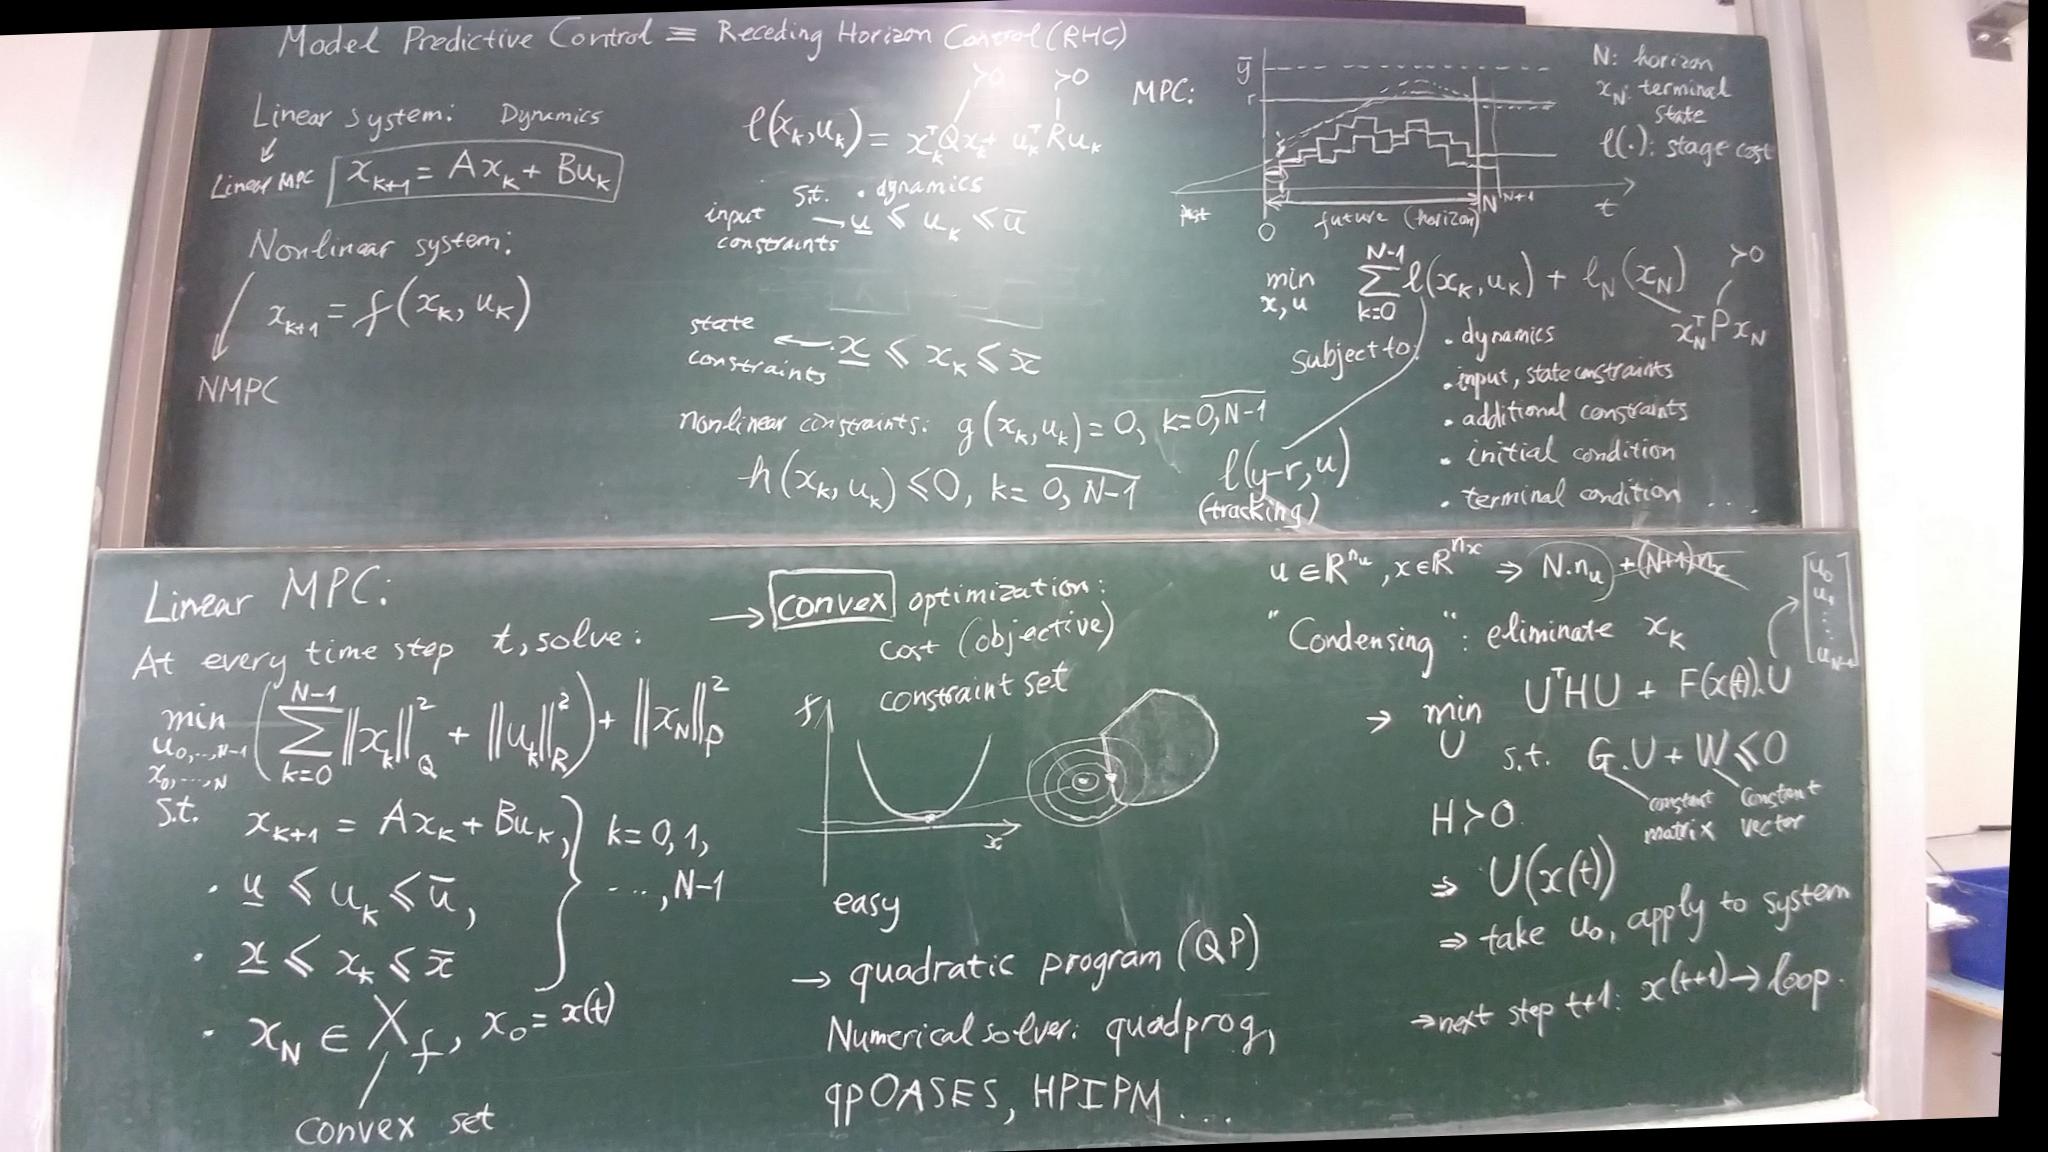 Model Predictive Control ≡ Receding Horizon Control (RHC)
Linear system: Dynamics
Linear MPC
x_{k+1} = Ax_k + Bu_k
Nonlinear system:
x_{k+1} = f(x_k, u_k)
NMPC
>0 >0
l(x_k, u_k) = x_k^T Q x_k + u_k^T R u_k
s.t. • dynamics
input constraints
→ u̲ ≤ u_k ≤ ū
state constraints
← • x̲ ≤ x_k ≤ x̄
nonlinear constraints: g(x_k, u_k) = 0, k = \overline{0, N-1}
h(x_k, u_k) ≤ 0, k = \overline{0, N-1}
MPC:
ȳ
r
past
0
future (horizon)
N
N+1
t
N: horizon
x_N: terminal
state
l(.): stage cost
min_{x, u} ∑_{k=0}^{N-1} l(x_k, u_k) + l_N(x_N)
>0
x_N^T P x_N
subject to
• dynamics
• input, state constraints
• additional constraints
• initial condition
• terminal condition ....
l(y-r, u)
(tracking)
Linear MPC:
At every time step t, solve:
min_{u_0,...,N-1 x_0,...,N} (∑_{k=0}^{N-1} ||x_k||_Q^2 + ||u_k||_R^2) + ||x_N||_P^2
s.t. x_{k+1} = Ax_k + Bu_k,
• u̲ ≤ u_k ≤ ū,
• x̲ ≤ x_k ≤ x̄
} k = 0, 1,
..., N-1
• x_N ∈ X_f, x_0 = x(t)
convex set
→ convex optimization:
cost (objective)
constraint set
f
x
easy
→ quadratic program (QP)
Numerical solver: quadprog,
qpOASES, HPIPM ...
u ∈ R^{n_u}, x ∈ R^{n_x} ⇒ N.n_u + (N+1)n_x
"Condensing": eliminate x_k
[u_0 u_1 ⋮ u_{N-1}]
→ min_U U^T H U + F(x(t)).U
s.t. G.U + W ≤ 0
constant matrix
constant vector
H > 0
⇒ U(x(t))
⇒ take u_0, apply to system
⇒ next step t+1: x(t+1) → loop.